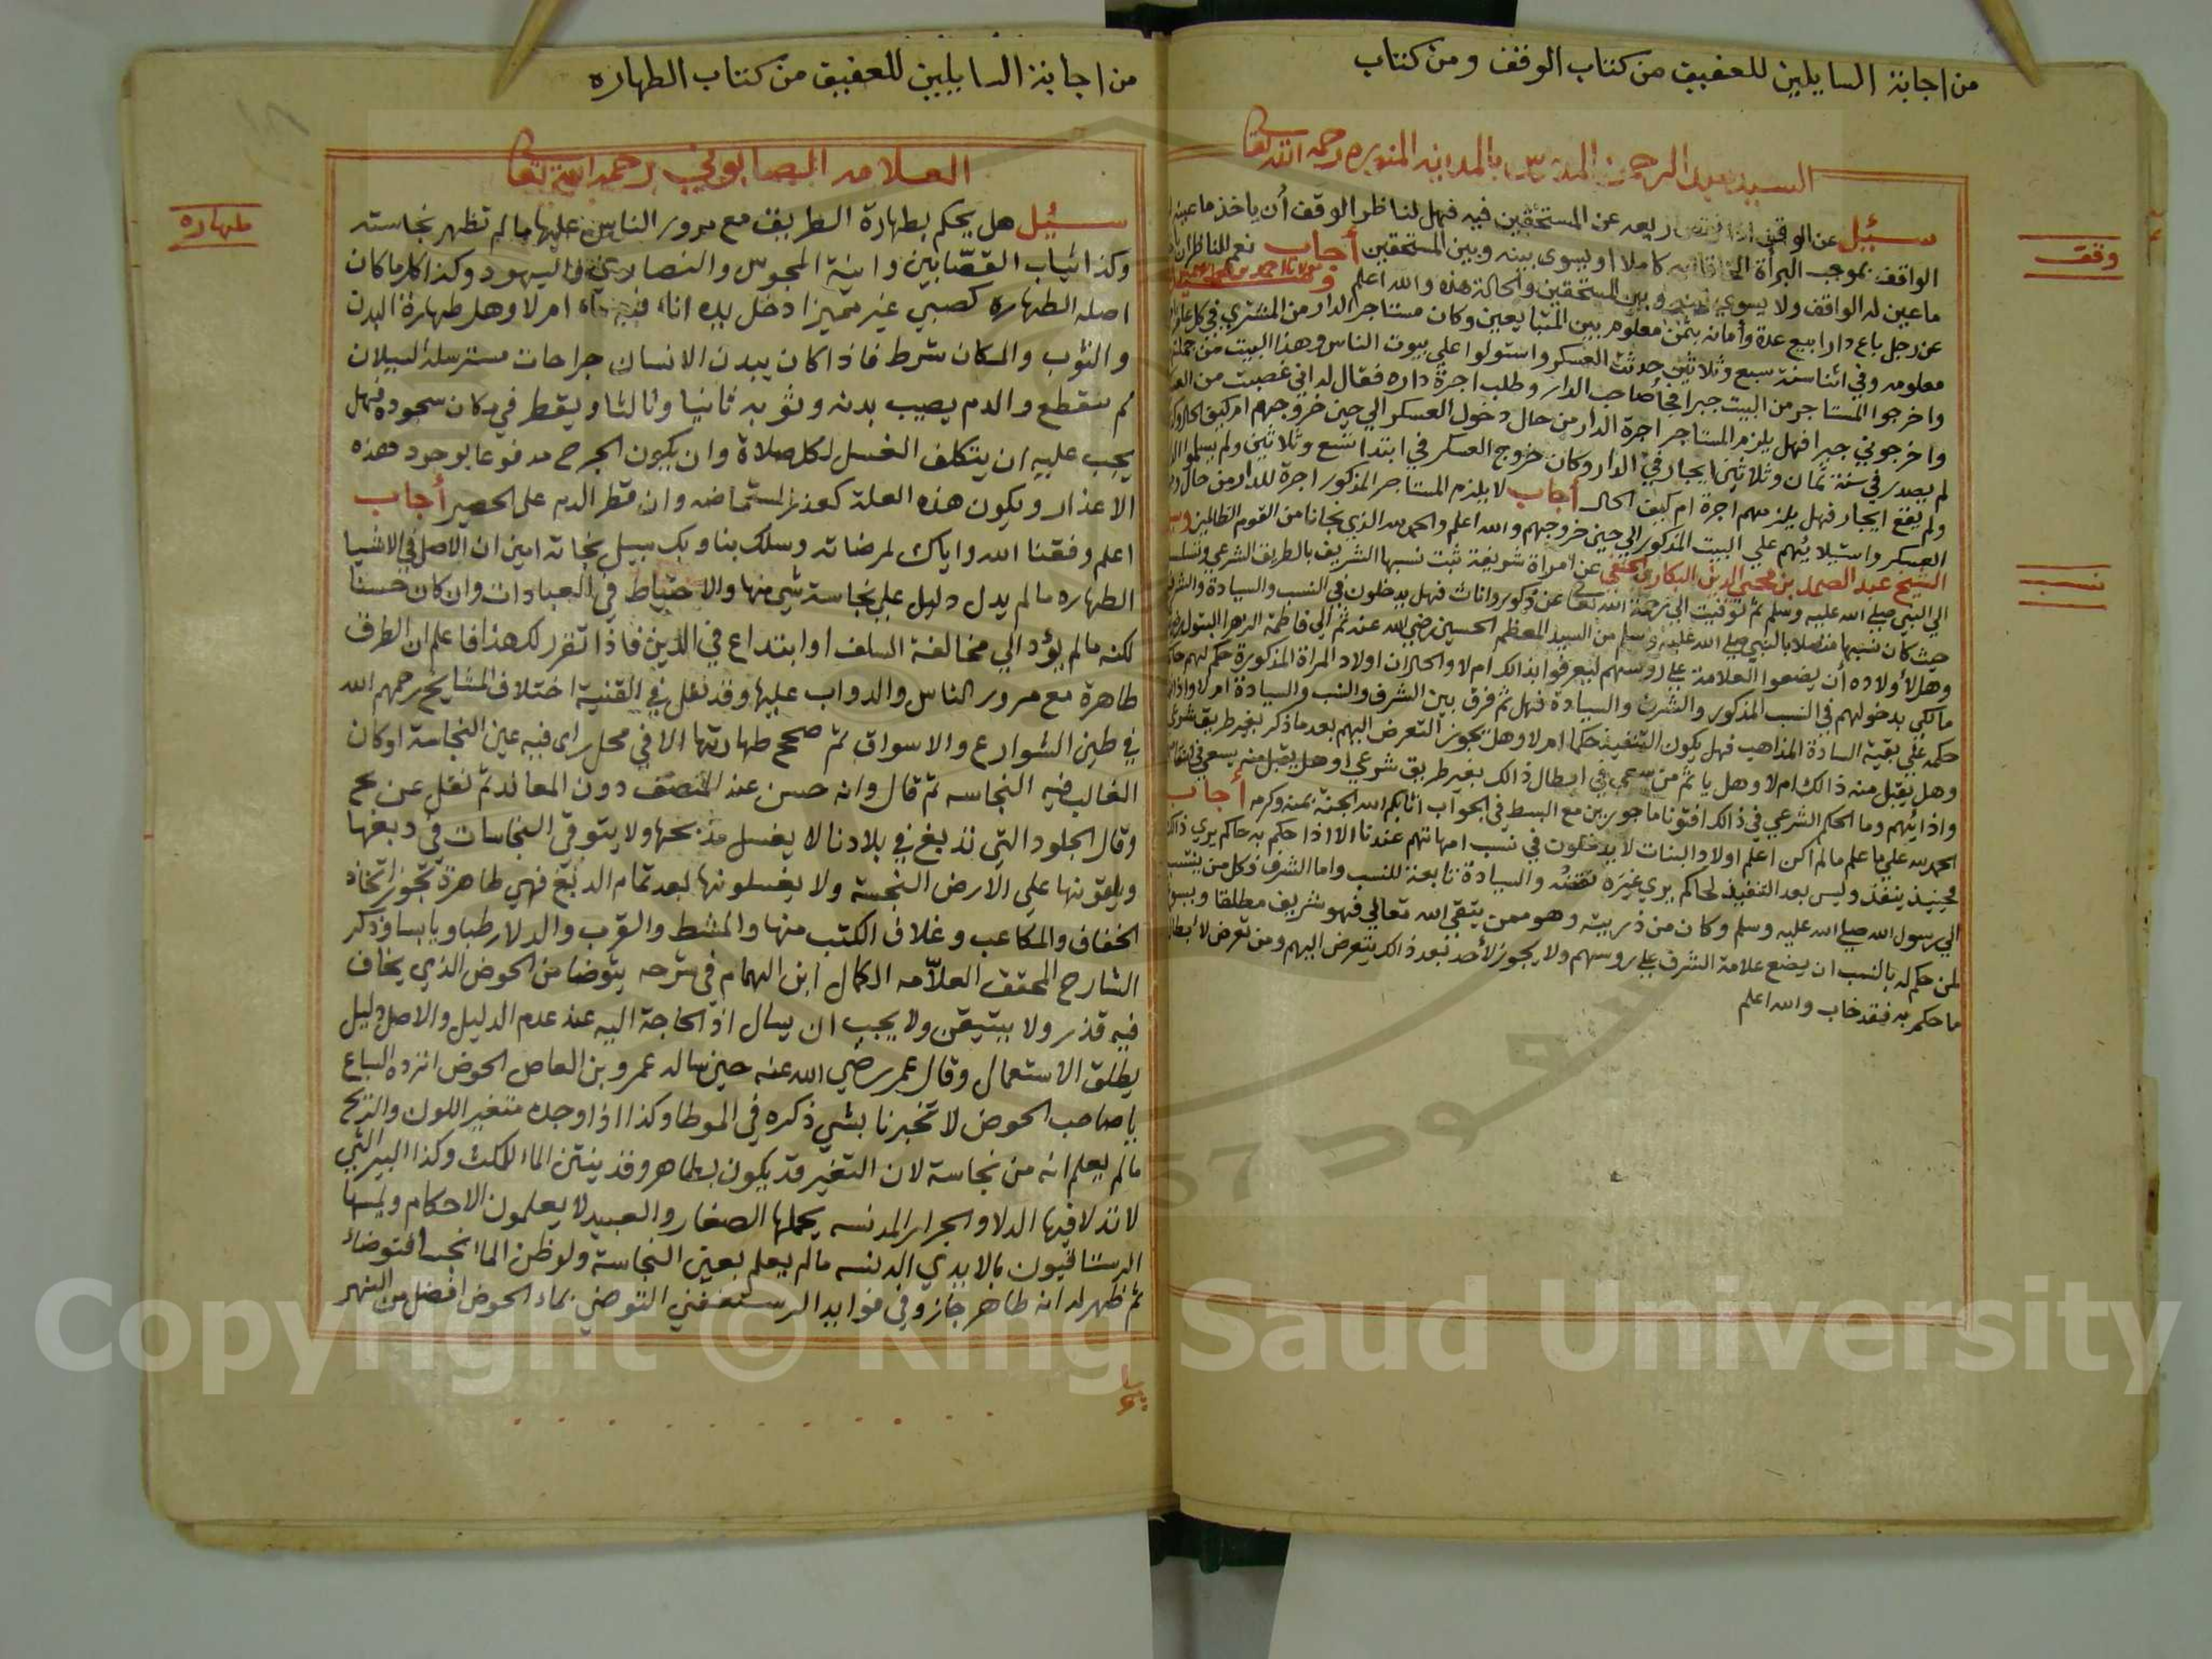 من اجابة السايلين للعفيف من كتاب الوقف ومن كتاب
السيد عبد الرحمن المدرس بالمدينه المنوره رحمه الله تعا
وقف
سئيل عن الوقف اذا ريعه عن المستحقين فيه فهل لناظر الوقف أن ياخذ ما عينه
الواقف بموجب البرأة كاملا او يسوى بينه وبين المستحقين أجاب نعم للناظر ان
ما عين له الواقف ولا يسوى بينه وبين المستحقين والحالة هذه والله اعلم
عن رجل باع دارا بيع عدة وأمانه بثمن معلوم بين المتبايعين وكان مستاجر الدار من المشتري في كل
معلومه وفي اثنا سنة سبع وثلاثين حدثت العسكر واستولوا علي بيوت الناس وهذا البيت من جملتها
واخرجوا المستاجر من البيت جبرا صاحب الدار وطلب اجرة داره فقال له اني غصبت من
واخرجوني جبرا فهل يلزم المستاجر اجرة الدار من حال دخول العسكر الي حين خروجهم ام كيف الحال
لم يصدر في سنة ثمان وثلاثين ايجار في الدار وكان خروج العسكر في ابتدا تسع وثلاثين ولم
ولم يقع ايجار فهل يلزمهم اجرة ام كيف الحال أجاب لا يلزم المستاجر المذكور اجرة للدار من حال
العسكر واستيلائهم علي البيت المذكور الي حين خروجهم والله اعلم والحمد لله الذي نجانا من القوم الظالمين
نسب
الشيخ عبد الصمد بن محيي الدين الحنفي عن امراة شريفة ثبت نسبها الشريف بالطريق الشرعي
الي النبي صلي الله عليه وسلم ثم توفيت الي رحمة الله تعا عن ذكور واناث فهل يدخلون في النسب والسيادة
حيث كان نسبها متصلا بالنبي صلي الله عليه وسلم من السيد المعظم الحسين رضي الله عنه ثم الي فاطمة الزهرا البتول
وهل لأولاده أن يضعوا العلامة علي روسهم ليعرفوا بذالك ام لا والحال ان اولاد المراة المذكورة حكم لهم
مالكي بدخولهم في النسب المذكور والشرف والسيادة فهل ثم فرق بين الشرف والنسب والسيادة ام لا واذا
حكمه علي بقية السادة المذاهب فهل يكون التنفيذ حكما ام لا وهل يجوز التعرض اليهم بعد ما ذكر بغير طريق شرعي
وهل يقبل منه ذالك ام لا وهل ياثم من سعى في ابطال ذالك بغير طريق شرعي او هل يقبل منه يسعى في
واذائهم وما الحكم الشرعي في ذالك افتونا ماجورين مع البسط في الجواب اثابكم الله الجنة بمنه وكرمه أجاب
الحمد لله علي ما علم ما لم اكن اعلم اولاد البنات لا يدخلون في نسب امهاتهم عندنا الا اذا حكم به حاكم يرى
فحينيذ ينفذ وليس بعد التنفيذ لحاكم يرى غيره نقضه والسيادة تابعة للنسب واما الشرف فكل من ينتسب
الي رسول الله صلي الله عليه وسلم وكان من ذريته وهو ممن يتقي الله تعالي فهو شريف مطلقا
لمن حكم له بالنسب ان يضع علامة الشرف علي روسهم ولا يجوز لأحد بعد ذالك يتعرض اليهم ومن تعرض
ما حكم به فقد خاب والله اعلم
من اجابة السايلين للعفيف من كتاب الطهاره
العلامه الصابوني رحمه الله تعا
طهاره
سئيل هل يحكم بطهارة الطريق مع مرور الناس عليها ما لم تظهر نجاسته
وكذا ثياب القصّابين وانية المجوس والنصارى واليهود وكذا كلما كان
اصله الطهاره كصبي غير مميز ادخل يده اناء ام لا وهل طهارة البدن
والثوب والمكان شرط فاذا كان ببدن الانسان جراحات مسترسلة السيلان
لم تنقطع والدم يصيب بدنه وثوبه ثانيا وثالثا ويقطر في مكان سجوده فهل
يجب عليه ان يتكلف الغسل لكل صلاة وان يكون الجرح مدفوعا بوجود هذه
الاعذار ويكون هذه العلة كعذر المستحاضه وان قطر الدم على الحصير أجاب
اعلم وفقنا الله واياك لمرضاته وسلك بنا وبك سبيل نجاته امين ان الاصل في الاشيا
الطهاره ما لم يدل دليل علي نجاسة شي منها والاحتياط في العبادات وان كان حسنا
لكنه ما لم يؤد الي مخالفة السلف او ابتداع في الدين فاذا تقرر لك هذا فاعلم ان الطرق
طاهرة مع مرور الناس والدواب عليها وقد نقل في القنية اختلاف المشايخ رحمهم الله
في طين الشوارع والاسواق ثم صحح طهارتها الا في محل راى فيه عين النجاسة او كان
الغالب فيه النجاسه ثم قال وانه حسن عند المنصف دون المعاند ثم نقل عن
وقال الجلود التي تدبغ في بلادنا لا يغسل مذبحها ولا يتوقي النجاسات في دبغها
ويلقونها علي الارض النجسة ولا يغسلونها بعد تمام الدبغ فهي طاهرة تجوز اتخاذ
الخفاف والمكاعب وغلاف الكتب منها والمشط والقرب والدلا رطبا ويابسا وذكر
الشارح المحقق العلاّمه الكمال ابن الهمام في شرحه يتوضا من الحوض الذي يخاف
فيه قذر ولا يتيقن ولا يجب ان يسال اذ الحاجة اليه عند عدم الدليل والاصل دليل
يطلق الاستعمال وقال عمر رضي الله عنه حين ساله عمرو بن العاص الحوض اترده السباع
يا صاحب الحوض لا تخبرنا بشي ذكره في الموطا وكذا اذا وجده متغير اللون والريح
ما لم يعلم انه من نجاسة لان التغير قد يكون بطاهر وقد ينتن الما للمكث وكذا البير التي
لا تدلا فيها الدلا والجرار المدنسه يحملها الصغار والعبيد لا يعلمون الاحكام ويمسها
الرستاقيون بالايدي الدنسه ما لم يعلم بعين النجاسة ولو ظن الما نجسا فتوضا
ثم ظهر له انه طاهر جاز وفي فوايد الرستغفني التوضي بماء الحوض افضل من النهر
Copyright © King Saud University